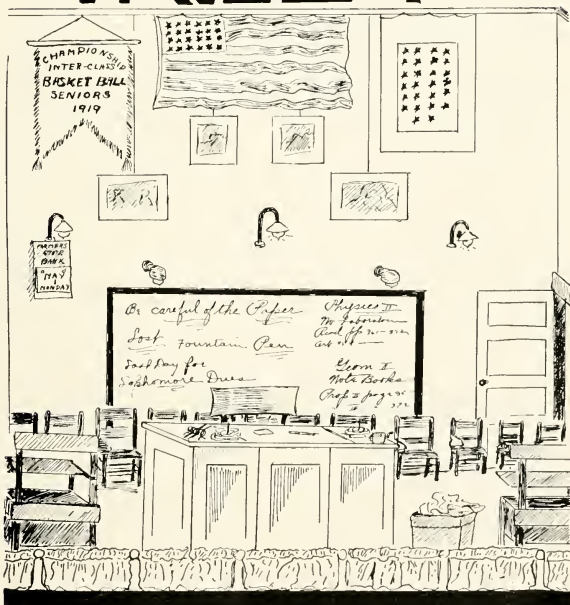 CHAMPIONSHIP
INTER-CLASS
BASKET BALL
SENIORS
1919
FARMERS
STATE
BANK
MAY
1
MONDAY
Be careful of the Paper
Lost Fountain Pen
Last Day for
Sophomore Dues
Physics II
No Laboratory
Read pp
Geom II
Note Books
Prop II page